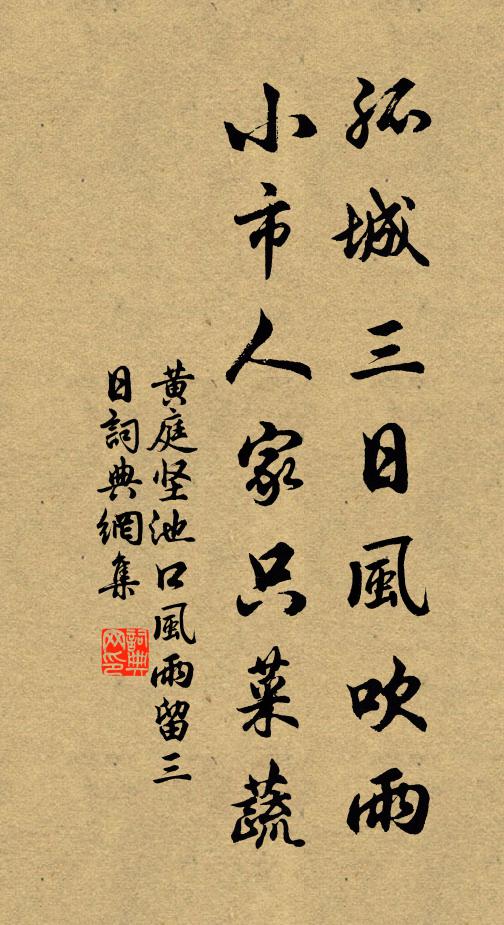 孤城三日風吹雨
小市人家只菜蔬
黄庭坚池口風雨留三
日詞典網集
詞典网印